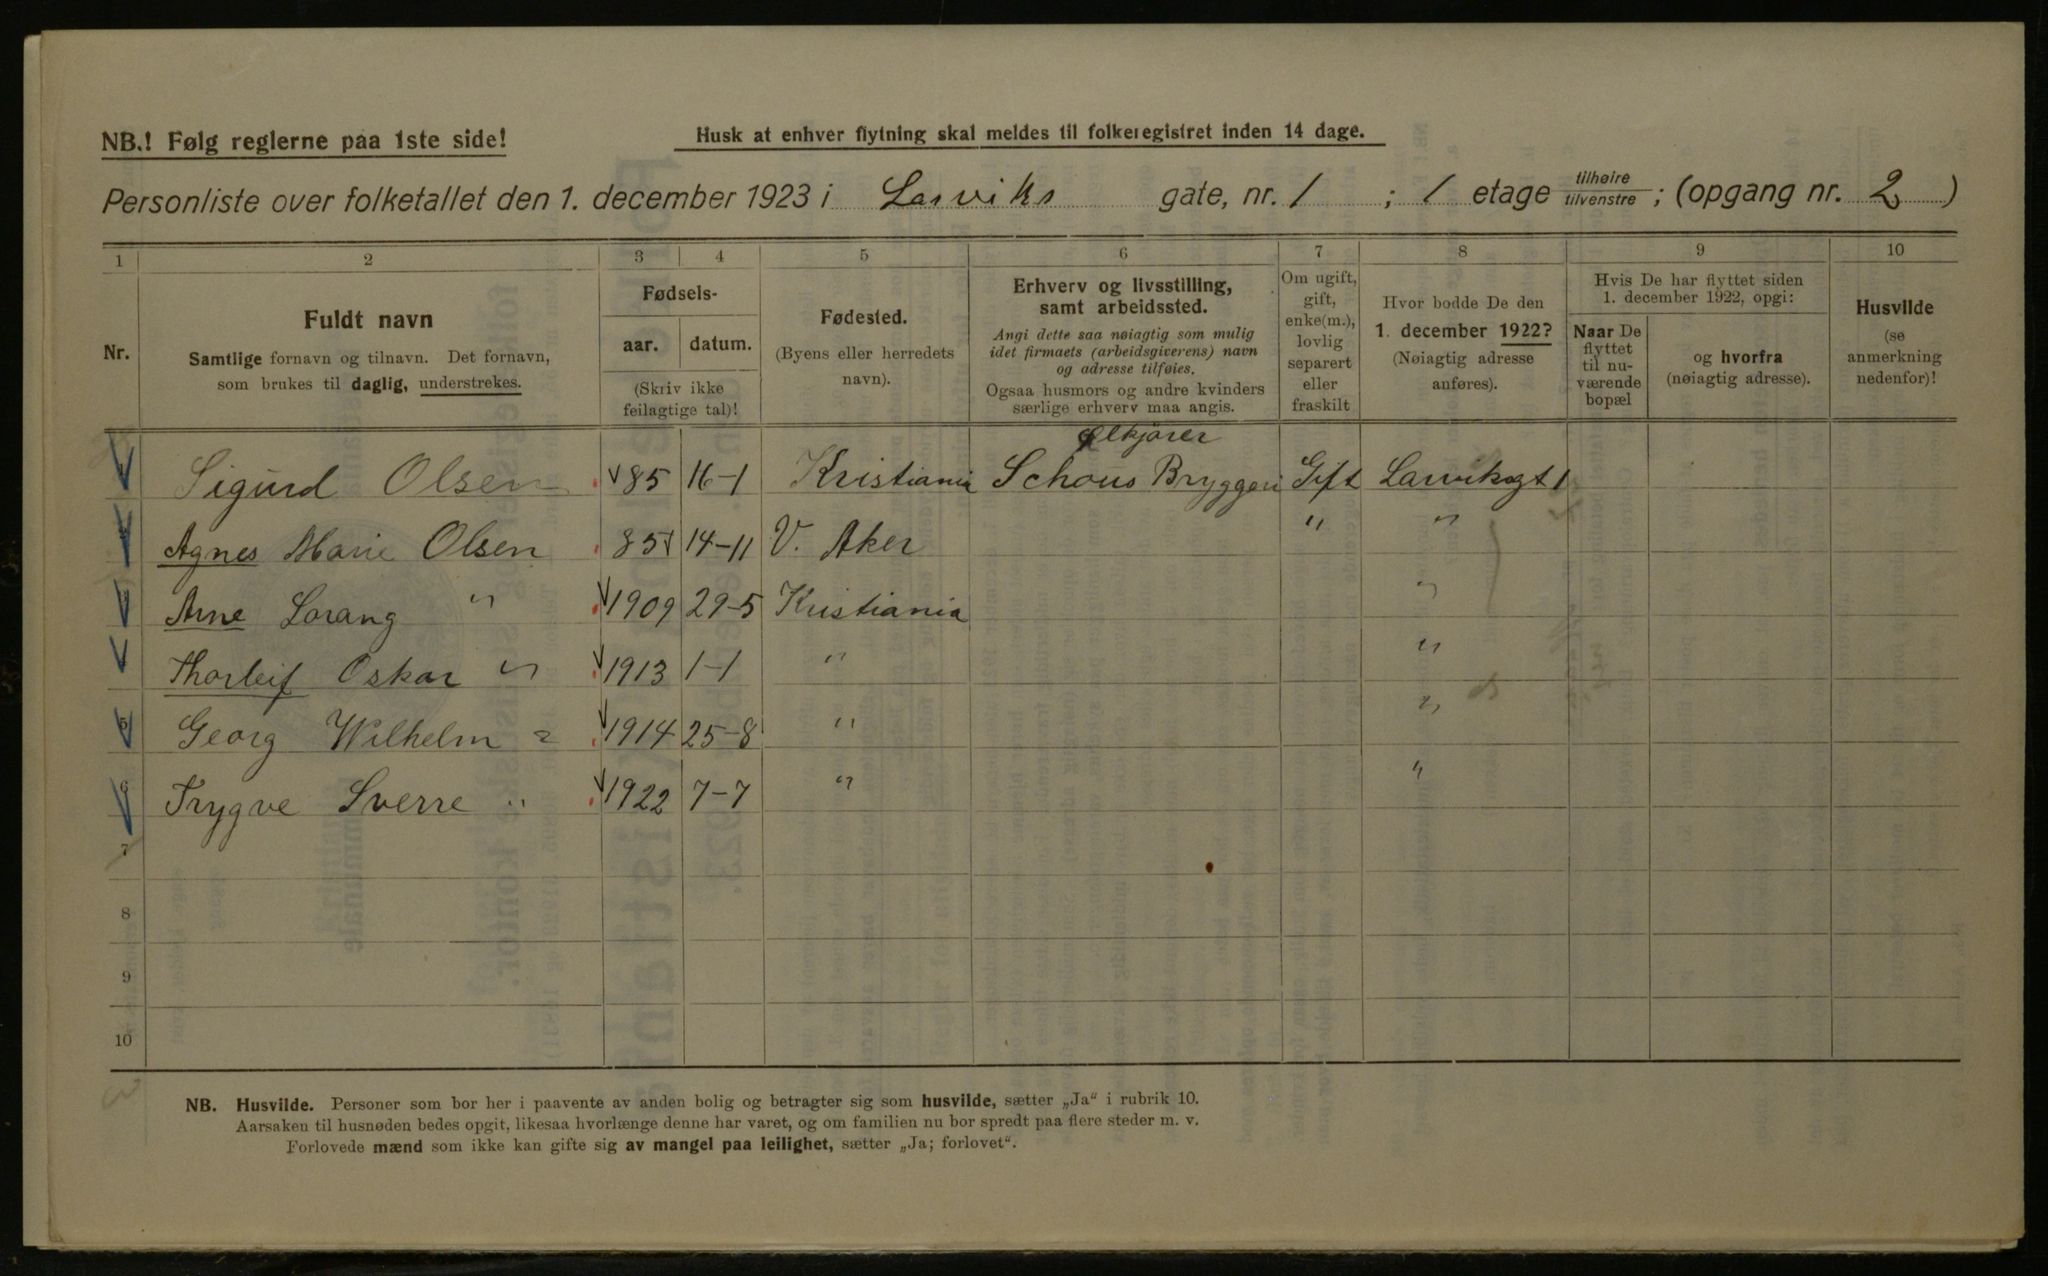 NB.! Følg reglerne paa 1ste side!
Husk at enhver flytning skal meldes til folkeregistret inden 14 dage.
Personliste over folketallet den 1. december 1923 i Larviks gate, nr. 1 ; 1 etage tilhøire tilvenstre ; (opgang nr. 2 )
1 2 3 4 5 6 7 8 9 10
Nr.
Fuldt navn
Samtlige fornavn og tilnavn. Det fornavn,
som brukes til daglig, understrekes.
Fødsels-
aar. datum.
(Skriv ikke
feilagtige tal)!
Fødested.
(Byens eller herredets
navn).
Erhverv og livsstilling,
samt arbeidssted.
Angi dette saa nøiagtig som mulig
idet firmaets (arbeidsgiverens) navn
og adresse tilføies.
Ogsaa husmors og andre kvinders
særlige erhverv maa angis.
Om ugift,
gift,
enke(m.),
lovlig
separert
eller
fraskilt
Hvor bodde De den
1. december 1922?
(Nøiagtig adresse
anføres).
Hvis De har flyttet siden
1. december 1922, opgi:
Naar De
flyttet
til nu-
værende
bopæl
og hvorfra
(nøiagtig adresse).
Husvilde
(se
anmerkning
nedenfor)!
Ølkjører
Sigurd Olsen 85 16-1 Kristiania Schous Bryggeri Gift Larviksgt 1
Agnes Marie Olsen 85 14-11 V. Aker " "
Arne Lorang " 1909 29-5 Kristiania "
Thorleif Oskar " 1913 1-1 " "
5 Georg Wilhelm " 1914 25-8 " "
6 Trygve Sverre " 1922 7-7 " "
7
8
9
10
NB. Husvilde. Personer som bor her i paavente av anden bolig og betragter sig som husvilde, sætter „Ja“ i rubrik 10.
Aarsaken til husnøden bedes opgit, likesaa hvorlænge denne har varet, og om familien nu bor spredt paa flere steder m. v.
Forlovede mænd som ikke kan gifte sig av mangel paa leilighet, sætter „Ja; forlovet“.